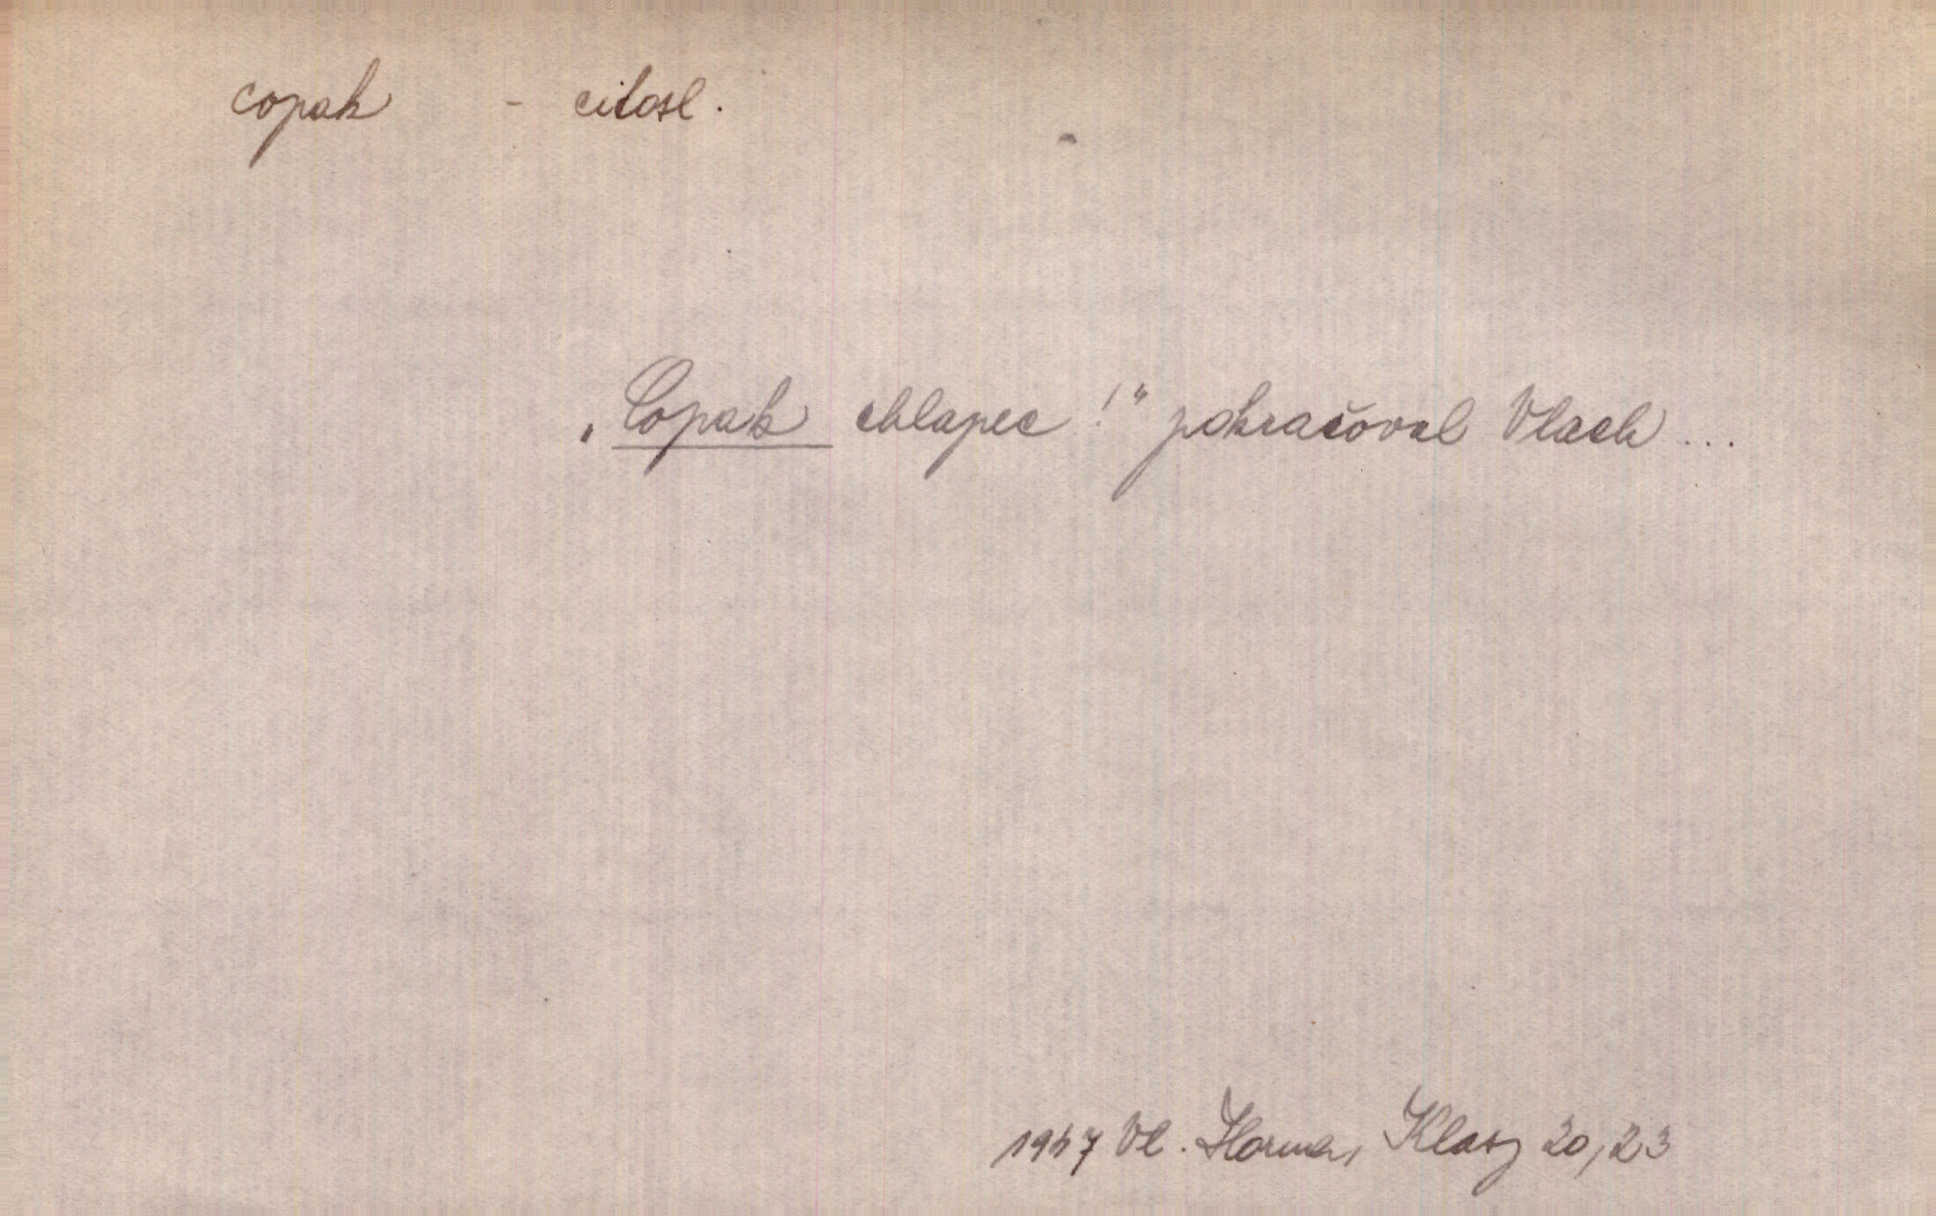 copak - citosl.
„Copak chlapec!" pokračoval Vlach ...
1947 Vl. Horna, Klasy 20, 23